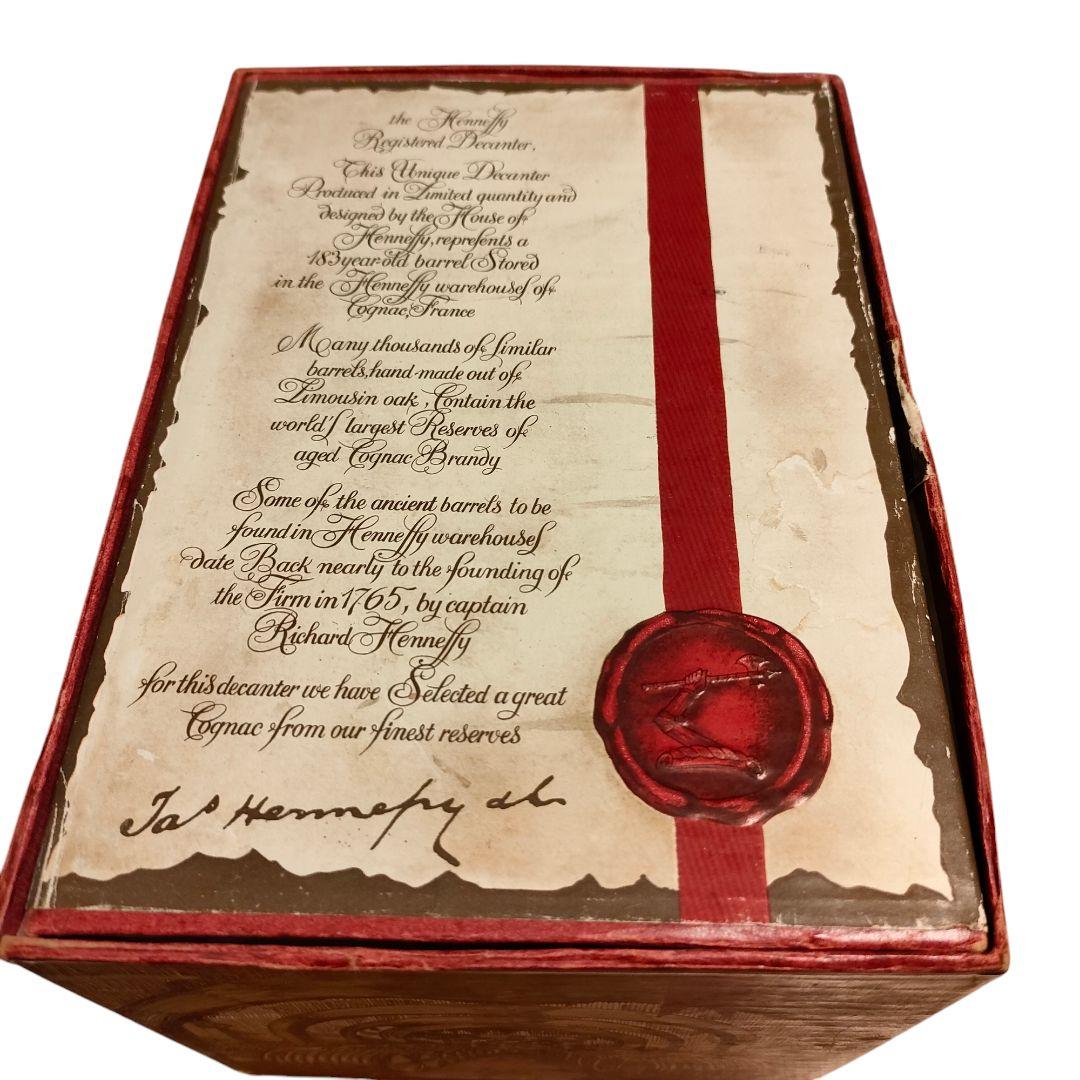 the Hennessy
Registered Decanter,
This Unique Decanter
Produced in Limited quantity and
designed by the House of
Hennessy, represents a
183 year old barrel Stored
in the Hennessy warehouses of
Cognac, France
Many thousands of similar
barrels, hand-made out of
Limousin oak, Contain the
world's largest Reserves of
aged Cognac Brandy
Some of the ancient barrels to be
found in Hennessy warehouses
date Back nearly to the founding of
the Firm in 1765, by captain
Richard Hennessy
for this decanter we have Selected a great
Cognac from our finest reserves
Jas Hennessy &Co